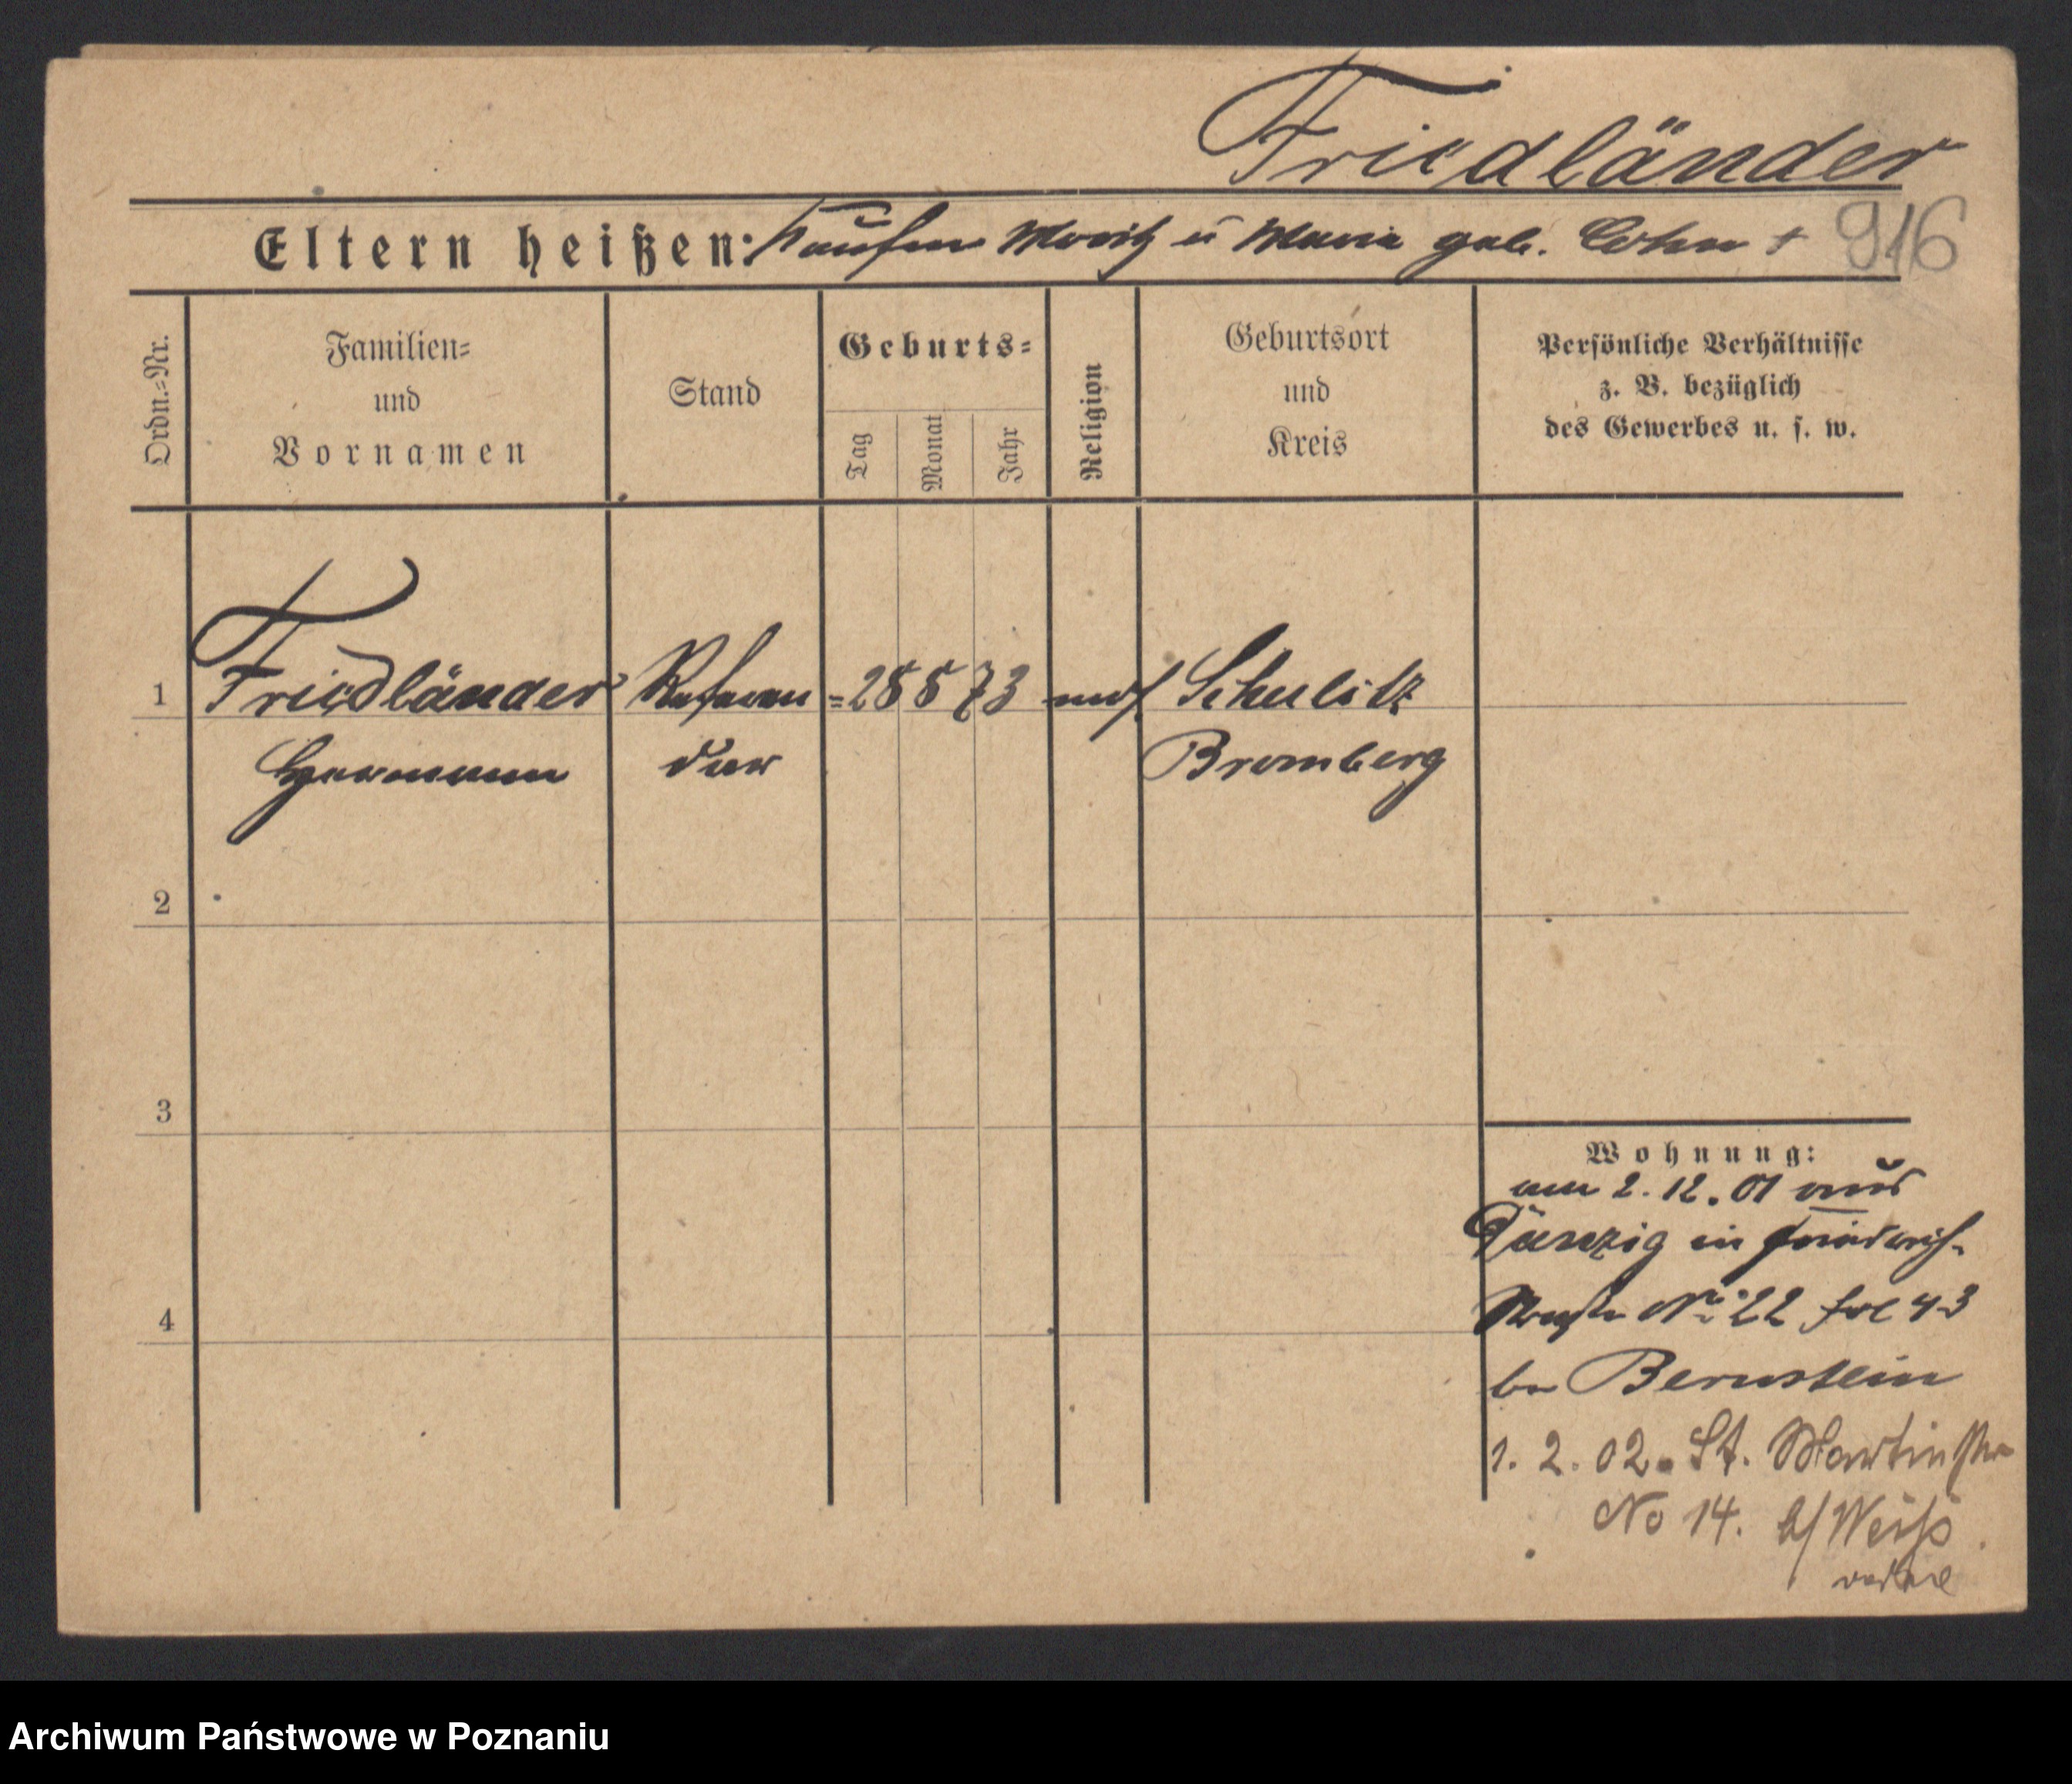 Friedländer
Eltern heißen: Kaufm Moritz u Maria geb. Cohn +
916
Ordn.=Nr.
Familien=
und
Vornamen
Stand
Geburts=
Tag
Monat
Jahr
Religion
Geburtsort
und
Kreis
Persönliche Verhältnisse
z. B. bezüglich
des Gewerbes u. s. w.
1 Friedländer Referen= 28 8 73 mos. Schulitz
Hermann dar Bromberg
2
3
4
Wohnung:
am 2. 12. 01 aus
Danzig in Friedrich-
straße No 22 fol 43
bei Bernstein
1. 2. 02. St. Martinstr
No 14. b/ Weiß
Archiwum Państwowe w Poznaniu